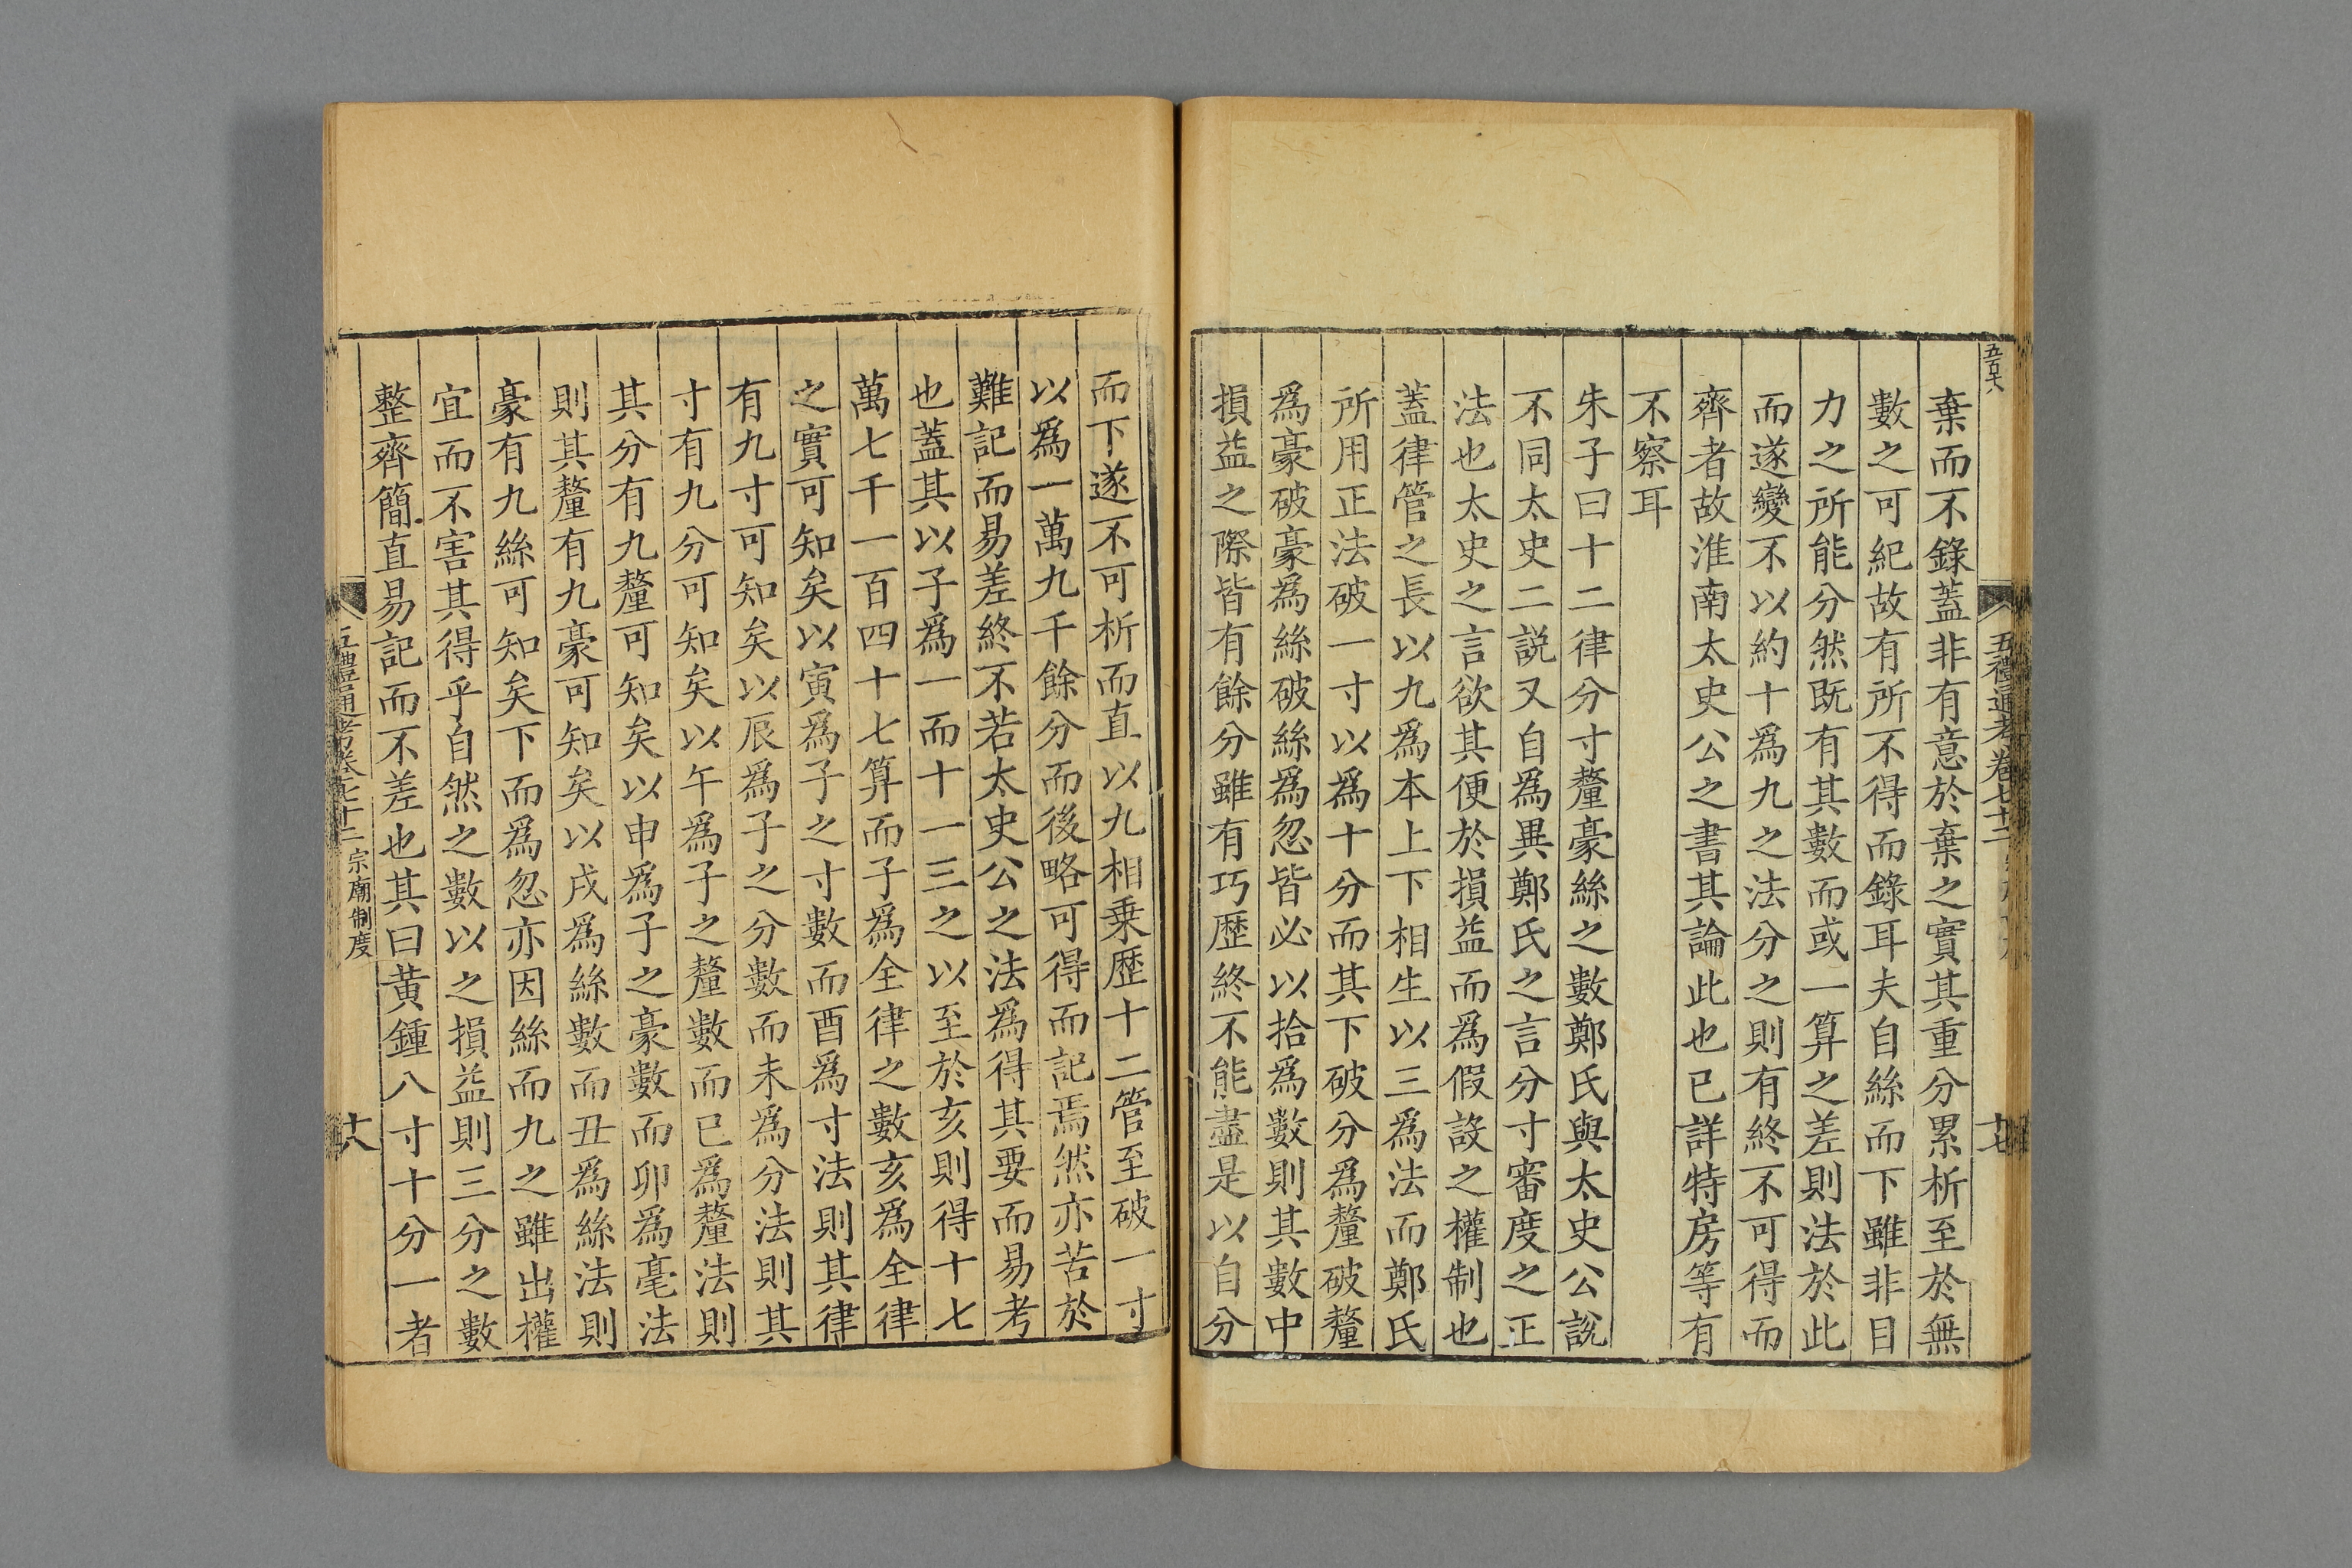 五百六
五禮通考卷七十二
十七
棄而不錄蓋非有意於棄之實其重分累析至於無
數之可紀故有所不得而錄耳夫自絲而下雖非目
力之所能分然既有其數而或一算之差則法於此
而遂變不以約十為九之法分之則有終不可得而
齊者故淮南太史公之書其論此也已詳特房等有
不察耳
朱子曰十二律分寸釐豪絲之數鄭氏與太史公說
不同太史二說又自為異鄭氏之言分寸審度之正
法也太史之言欲其便於損益而為假設之權制也
蓋律管之長以九為本上下相生以三為法而鄭氏
所用正法破一寸以為十分而其下破分為釐破釐
為豪破豪為絲破絲為忽皆必以拾為數則其數中
損益之際皆有餘分雖有巧歷終不能盡是以自分
而下遂不可析而直以九相乗歷十二管至破一寸
以為一萬九千餘分而後略可得而記焉然亦苦於
難記而易差終不若太史公之法為得其要而易考
也蓋其以子為一而十一三之以至於亥則得十七
萬七千一百四十七算而子為全律之數亥為全律
之實可知矣以寅為子之寸數而酉為寸法則其律
有九寸可知矣以辰為子之分數而未為分法則其
寸有九分可知矣以午為子之釐數而巳為釐法則
其分有九釐可知矣以申為子之豪數而卯為毫法
則其釐有九豪可知矣以戌為絲數而丑為絲法則
豪有九絲可知矣下而為忽亦因絲而九之雖出權
宜而不害其得乎自然之數以之損益則三分之數
整齊簡直易記而不差也其曰黃鍾八寸十分一者
五禮通考卷七十二
宗廟制度
十八